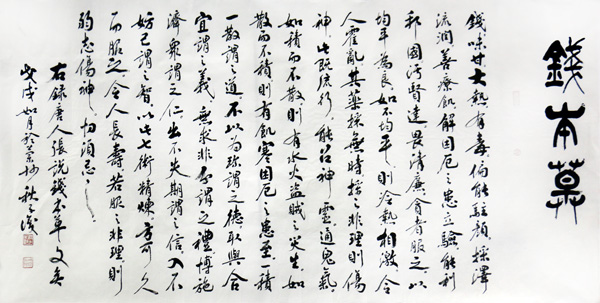 錢本草
錢味甘大熱有毒偏能駐顏採澤
流潤善療飢解困厄之患立驗能利
邦國污賢達畏清廉貪者服之以
均平為良如不均平則冷熱相激令
人霍亂其藥採無時採之非理則傷
神此既流行能召神靈通鬼氣
如積而不散則有水火盜賊之災生如
散而不積則有飢寒困厄之患至一積
一散謂之道不以為珍謂之德取與合
宜謂之義無求非分謂之禮博施
濟眾謂之仁出不失期謂之信入不
妨己謂之智以此七術精煉方可久
而服之令人長壽若服之非理則
弱志傷神切須忌之
右錄唐人張說錢本草文
戌如月於京